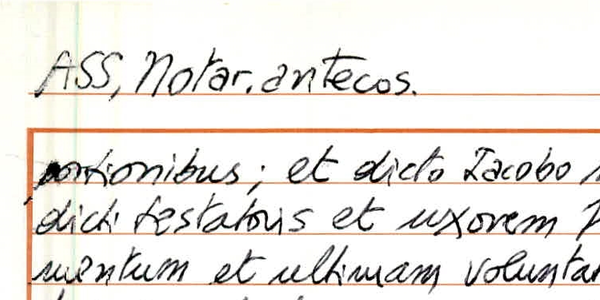 ASS, Notar. antecos.
portionibus; et dicto Iacobo
dicti testatoris et uxorem
mentum et ultimam volunta